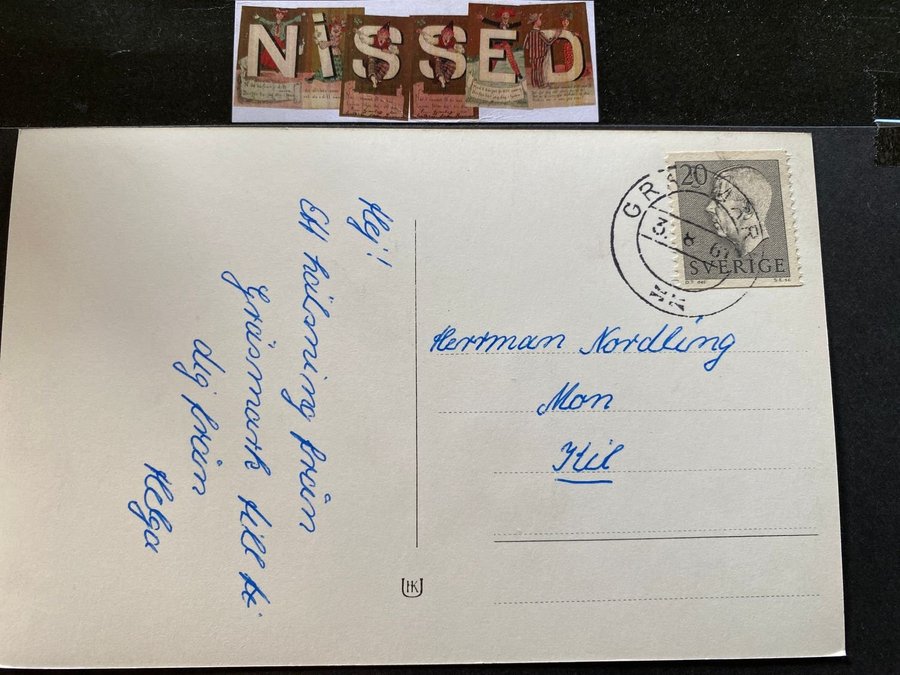 NISSED
Hej!
Ett hälsning från
Gräsmark till
dig från
Helga
20
SVERIGE
3. 8 61
Herrman Nordling
Mon
Kil
HK